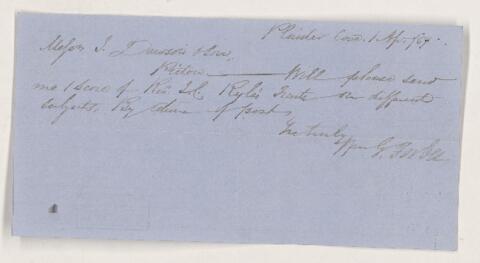 Plaister Cove, 1 Ap. /67.
Messrs J. & Son,
Pictou — Will please send
me 1 Score of Rev. J.C. Ryle's Tracts on different
subjects, By return of post,
Yrs truly
Wm G.